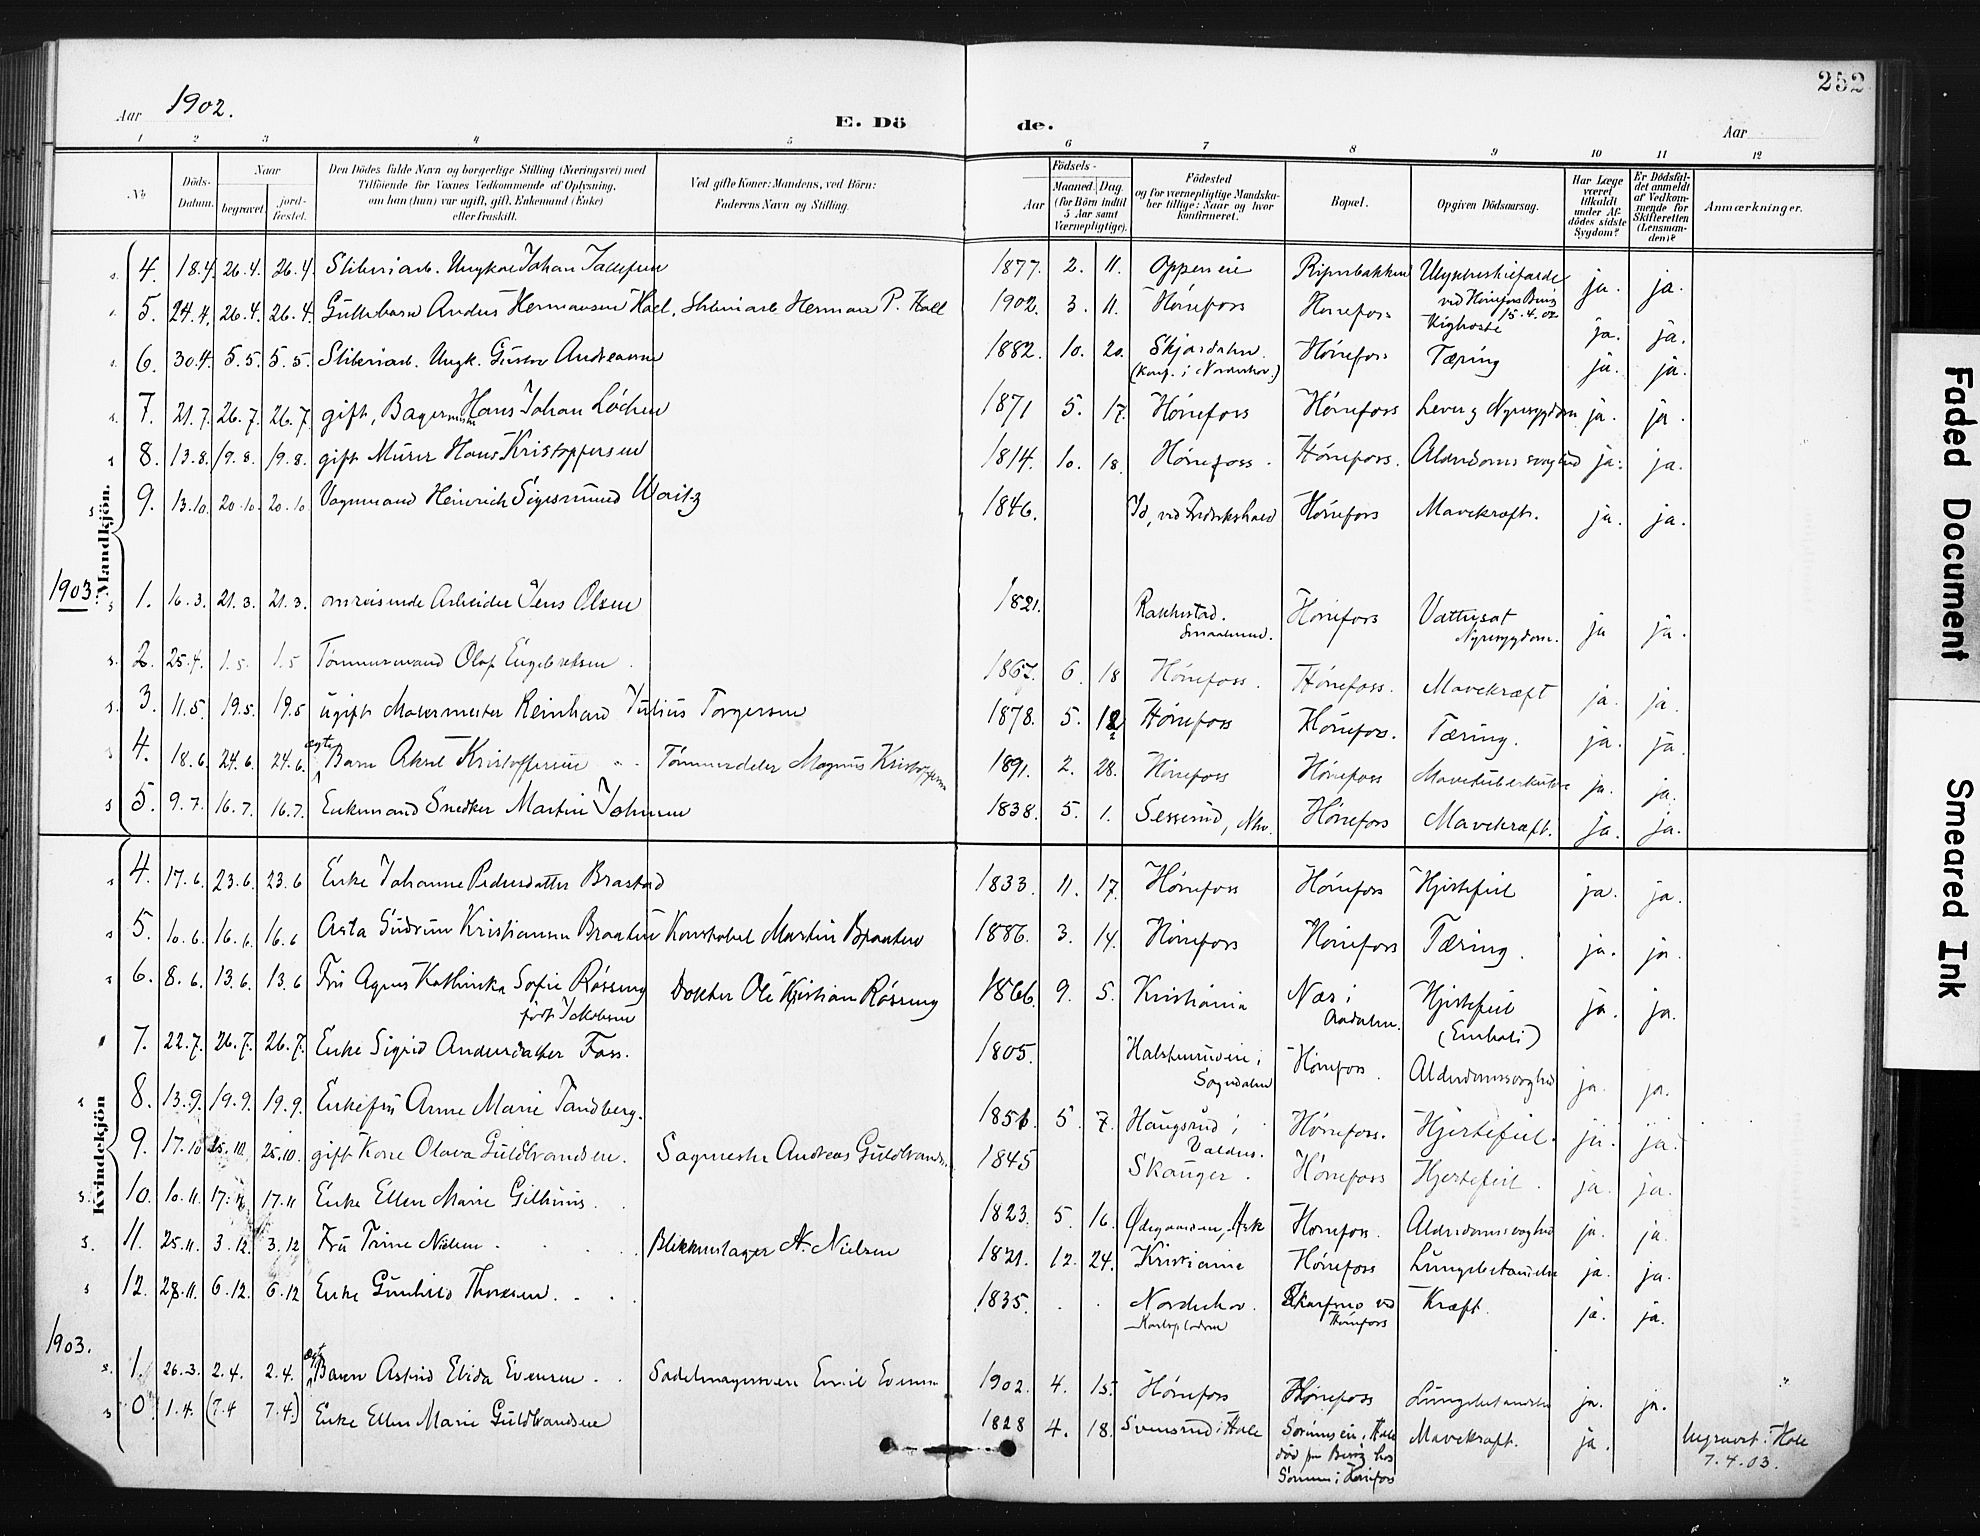 252
Aar 1902.
E. Döde.
Aar
1 2 3 4 5 6 7 8 9 10 11 12
No
Döds-Datum.
Naar
begravet.
jordfæstet.
Den Dödes fulde Navn og borgerlige Stilling (Næringsvei) med Tilföiende for Voxnes Vedkommende af Oplysning, om han (hun) var ugift, gift, Enkemand (Enke) eller fraskilt.
Ved gifte Koner: Mandens, ved Börn: Faderens Navn og Stilling.
Födsels-
Aar
Maaned. Dag.
(for Börn indtil 5 Aar samt Værnepligtige).
Födested og for værnepligtige Mandskaber tillige: Naar og hvor konfirmeret.
Bopæl.
Opgiven Dödsaarsag.
Har Læge været tilkaldt under Afdödes sidste Sygdom?
Er Dödsfaldet anmeldt af Vedkommende for Skifteretten (Lensmanden)?
Anmærkninger.
Mandkjön.
4. 18.4. 26.4. 26.4. Sliberiarb. Ungkar Johan 1877. 2. 11. Oppen eie Ripersbakken ved Hønefos Brug 15.4.02 ja. ja.
5. 24.4. 26.4. 26.4. Guttebarn Anders Hermansen Hoel, Sliberiarb. Herman P. Hoel 1902. 3. 11. Hønefoss Hønefoss Kighoste ja. ja.
6. 30.4. 5.5. 5.5. Sliberiarb. Ungk. Gustav Andreassen 1882. 10. 20. Skjærdalen (konf. i Norderhov.) Hønefoss Tæring ja. ja.
7. 21.7. 26.7. 26.7. gift, Bagermester Hans Johan Löchen 1871 5. 17. Hønefoss Hønefoss Lever og Nyresygdom ja. ja.
8. 13.8. 19.8. 19.8. gift Murer Hans Kristoffersen 1814. 10. 18. Hønefoss. Hønefoss. Alderdomssvaghed ja. ja.
9. 13.10. 20.10. 20.10. Vognmand Heinrich Sigesmund Waitz 1846. Id, ved Fredrikshald Hønefoss Mavekræft. ja. ja.
1903.
1. 16.3. 21.3. 21.3. omreisende Arbeider Jens Olsen 1821. Rakkestad. Smaalenene. Hønefoss Vattersot Nyresygdom. ja ja.
2. 25.4. 1.5. 1.5 Tömmermand Olaf Engebretsen. 1867. 6. 18 Hønefoss. Hønefoss. Mavekræft ja. ja.
3. 11.5. 19.5. 19.5 ugift Malermester Reinhard Julius Torgersen 1878. 5. 12 Hønefoss Hønefoss. Tæring. ja. ja.
4. 18.6. 24.6. 24.6. ægte Barn Aksel Kristoffersen Tömmerdeler Magnus Kristoffersen 1891. 2. 28. Hønefoss Hønefoss Mavetuberkulose ja. ja.
5. 9.7. 16.7. 16.7. Enkemand Snedker Martin Johnsen 1838. 5. 1. Sesserud, Nhv. Hønefoss Mavekræft. ja. ja.
Kvindekjön
4. 17.6. 23.6. 23.6 Enke Johanne Pedersdatter Brastad 1833. 11. 17. Hønefoss Hønefoss Hjertefeil ja. ja.
5. 10.6. 16.6. 16.6 Asta Gudrun Kristiansen Braaten Konstabel Martin Braaten 1886. 3. 14. Hønefoss Hønefoss Tæring. ja. ja.
6. 8.6. 13.6. 13.6 Fru Agnes Kathinka Sofie Røssing født Jakobsen Doktor Ole Kristian Røssing 1866. 9. 5. Kristiania Næs i Aadalen. Hjertefeil (Emboli) ja. ja.
7. 22.7. 26.7. 26.7. Enke Sigrid Andersdatter Foss. 1805. i Sogndalen Hønefoss. Alderdomssvaghed ja. ja.
8. 13.9. 19.9. 19.9. Enkefru Anne Marie Tandberg. 1851. 5. 7. Haugsrud i Valders. Hønefoss. Hjertefeil. ja. ja.
9. 17.10 25.10. 25.10. gift Kone Olava Guldbrandsen. Sagmester Andreas Guldbrands.. 1845 Skauger. Hønefoss Hjertefeil. ja. ja.
10. 10.11. 17.11 17.11 Enke Ellen Marie Gilhuus. 1823. 5. 16. Ødegaarden, Ask Hønefoss. Alderdomssvaghed ja. ja.
11. 25.11. 3.12. 3.12 Fru Trine Nielsen. Blikkenslager A. Nielsen 1821. 12. 24. Kristiania Hønefoss Lungebetændelse ja. ja.
12. 28.11. 6.12. 6.12 Enke Gunhild Thoresen. 1835. Norderhov. ved Hønefoss Kræft. ja. ja.
1903.
1. 26.3. 2.4. 2.4. ægte Barn Astrid Elida Evensen Sadelmagersvend Emil Evensen 1902. 4. 15. Hønefoss Hønefoss Lungebetændelse ja. ja.
0. 1.4. (7.4 7.4.) Enke Ellen Marie Guldbrandsen 1828 4. 18. Svensrud i Hole i Hole død paa Besøg hos i Hønefoss Mavekræft. ja. begravet i Hole 7.4.03.
Faded Document
Smeared Ink